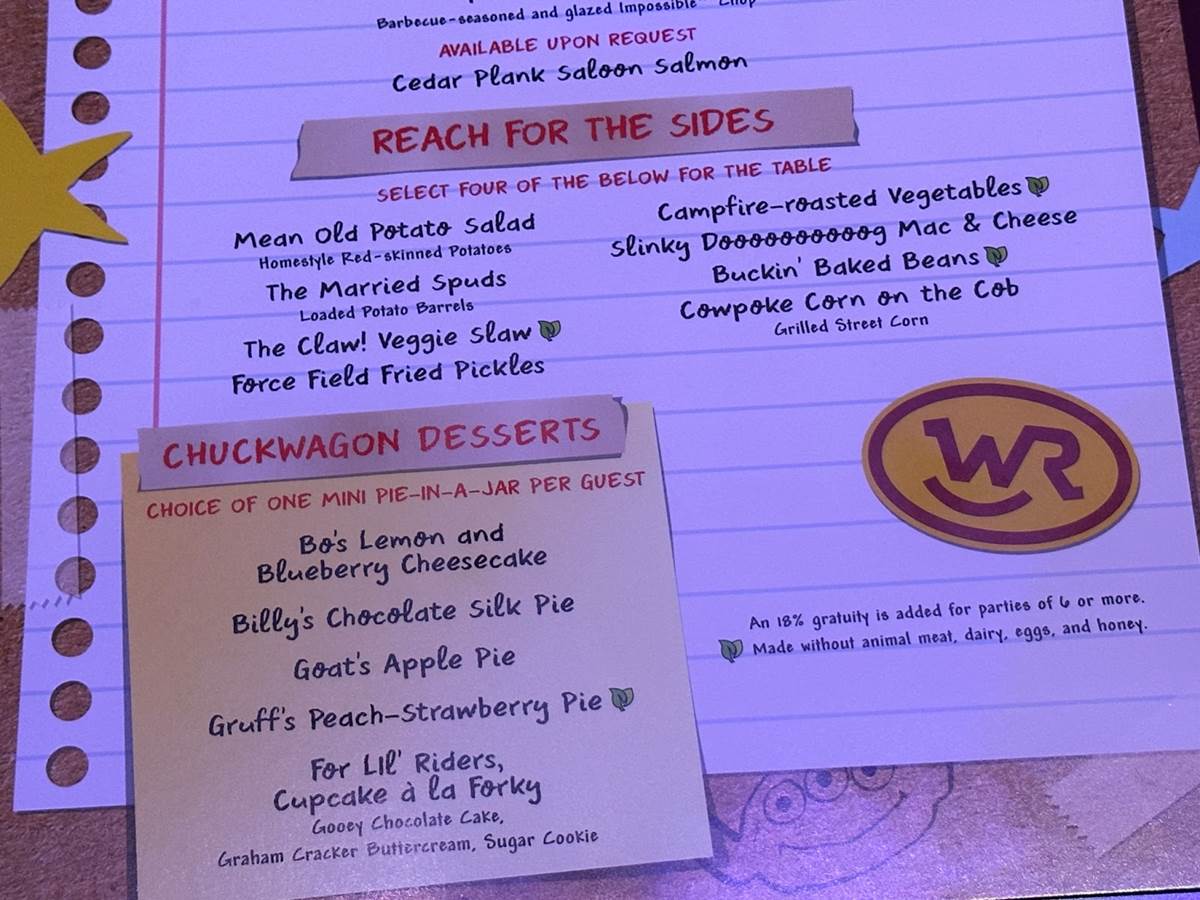 Barbecue-seasoned and glazed Impossible™ Chop
AVAILABLE UPON REQUEST
Cedar Plank Saloon Salmon
REACH FOR THE SIDES
SELECT FOUR OF THE BELOW FOR THE TABLE
Mean Old Potato Salad
Homestyle Red-skinned Potatoes
The Married Spuds
Loaded Potato Barrels
The Claw! Veggie Slaw
Force Field Fried Pickles
Campfire-roasted Vegetables
Slinky Doooooooooog Mac & Cheese
Buckin' Baked Beans
Cowpoke Corn on the Cob
Grilled Street Corn
CHUCKWAGON DESSERTS
CHOICE OF ONE MINI PIE-IN-A-JAR PER GUEST
Bo's Lemon and
Blueberry Cheesecake
Billy's Chocolate Silk Pie
Goat's Apple Pie
Gruff's Peach-Strawberry Pie
For Lil' Riders,
Cupcake à la Forky
Gooey Chocolate Cake,
Graham Cracker Buttercream, Sugar Cookie
WR
An 18% gratuity is added for parties of 6 or more.
Made without animal meat, dairy, eggs, and honey.